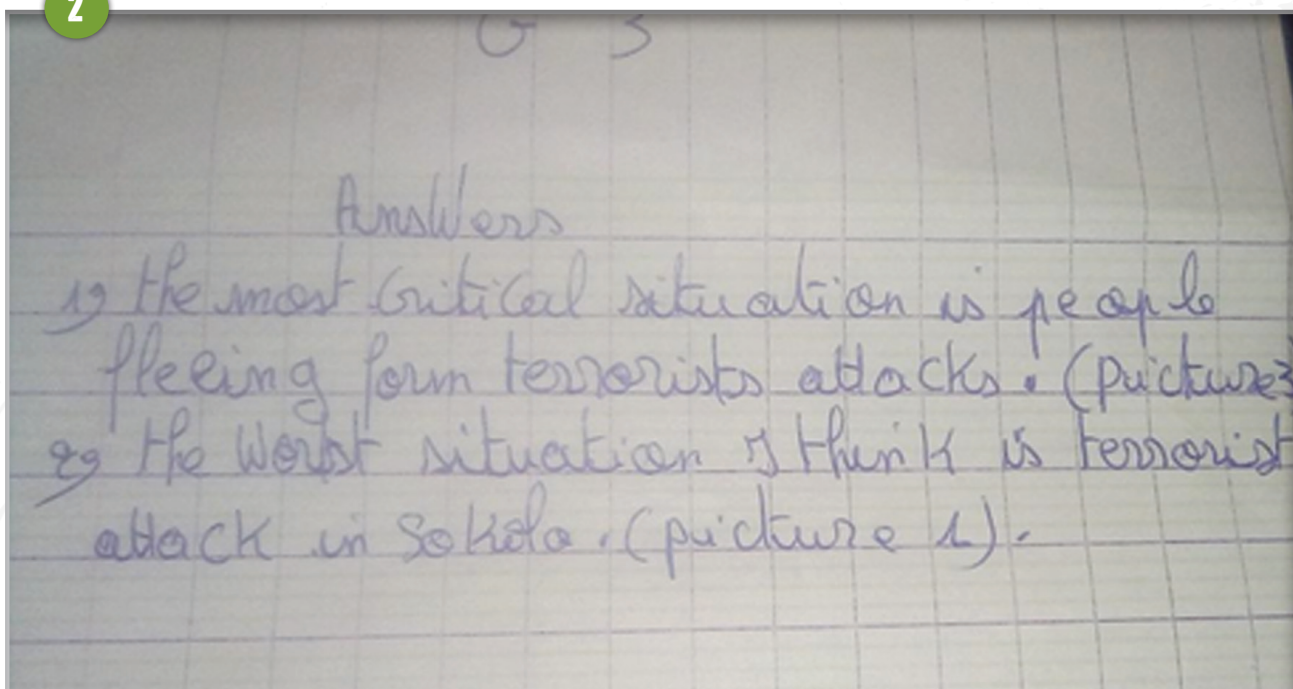 2
G 3
Answers
1) the most critical situation is people
fleeing form terrorists attacks. (picture3
2) the worst situation I think is terrorist
attack in Sokolo. (picture 1).